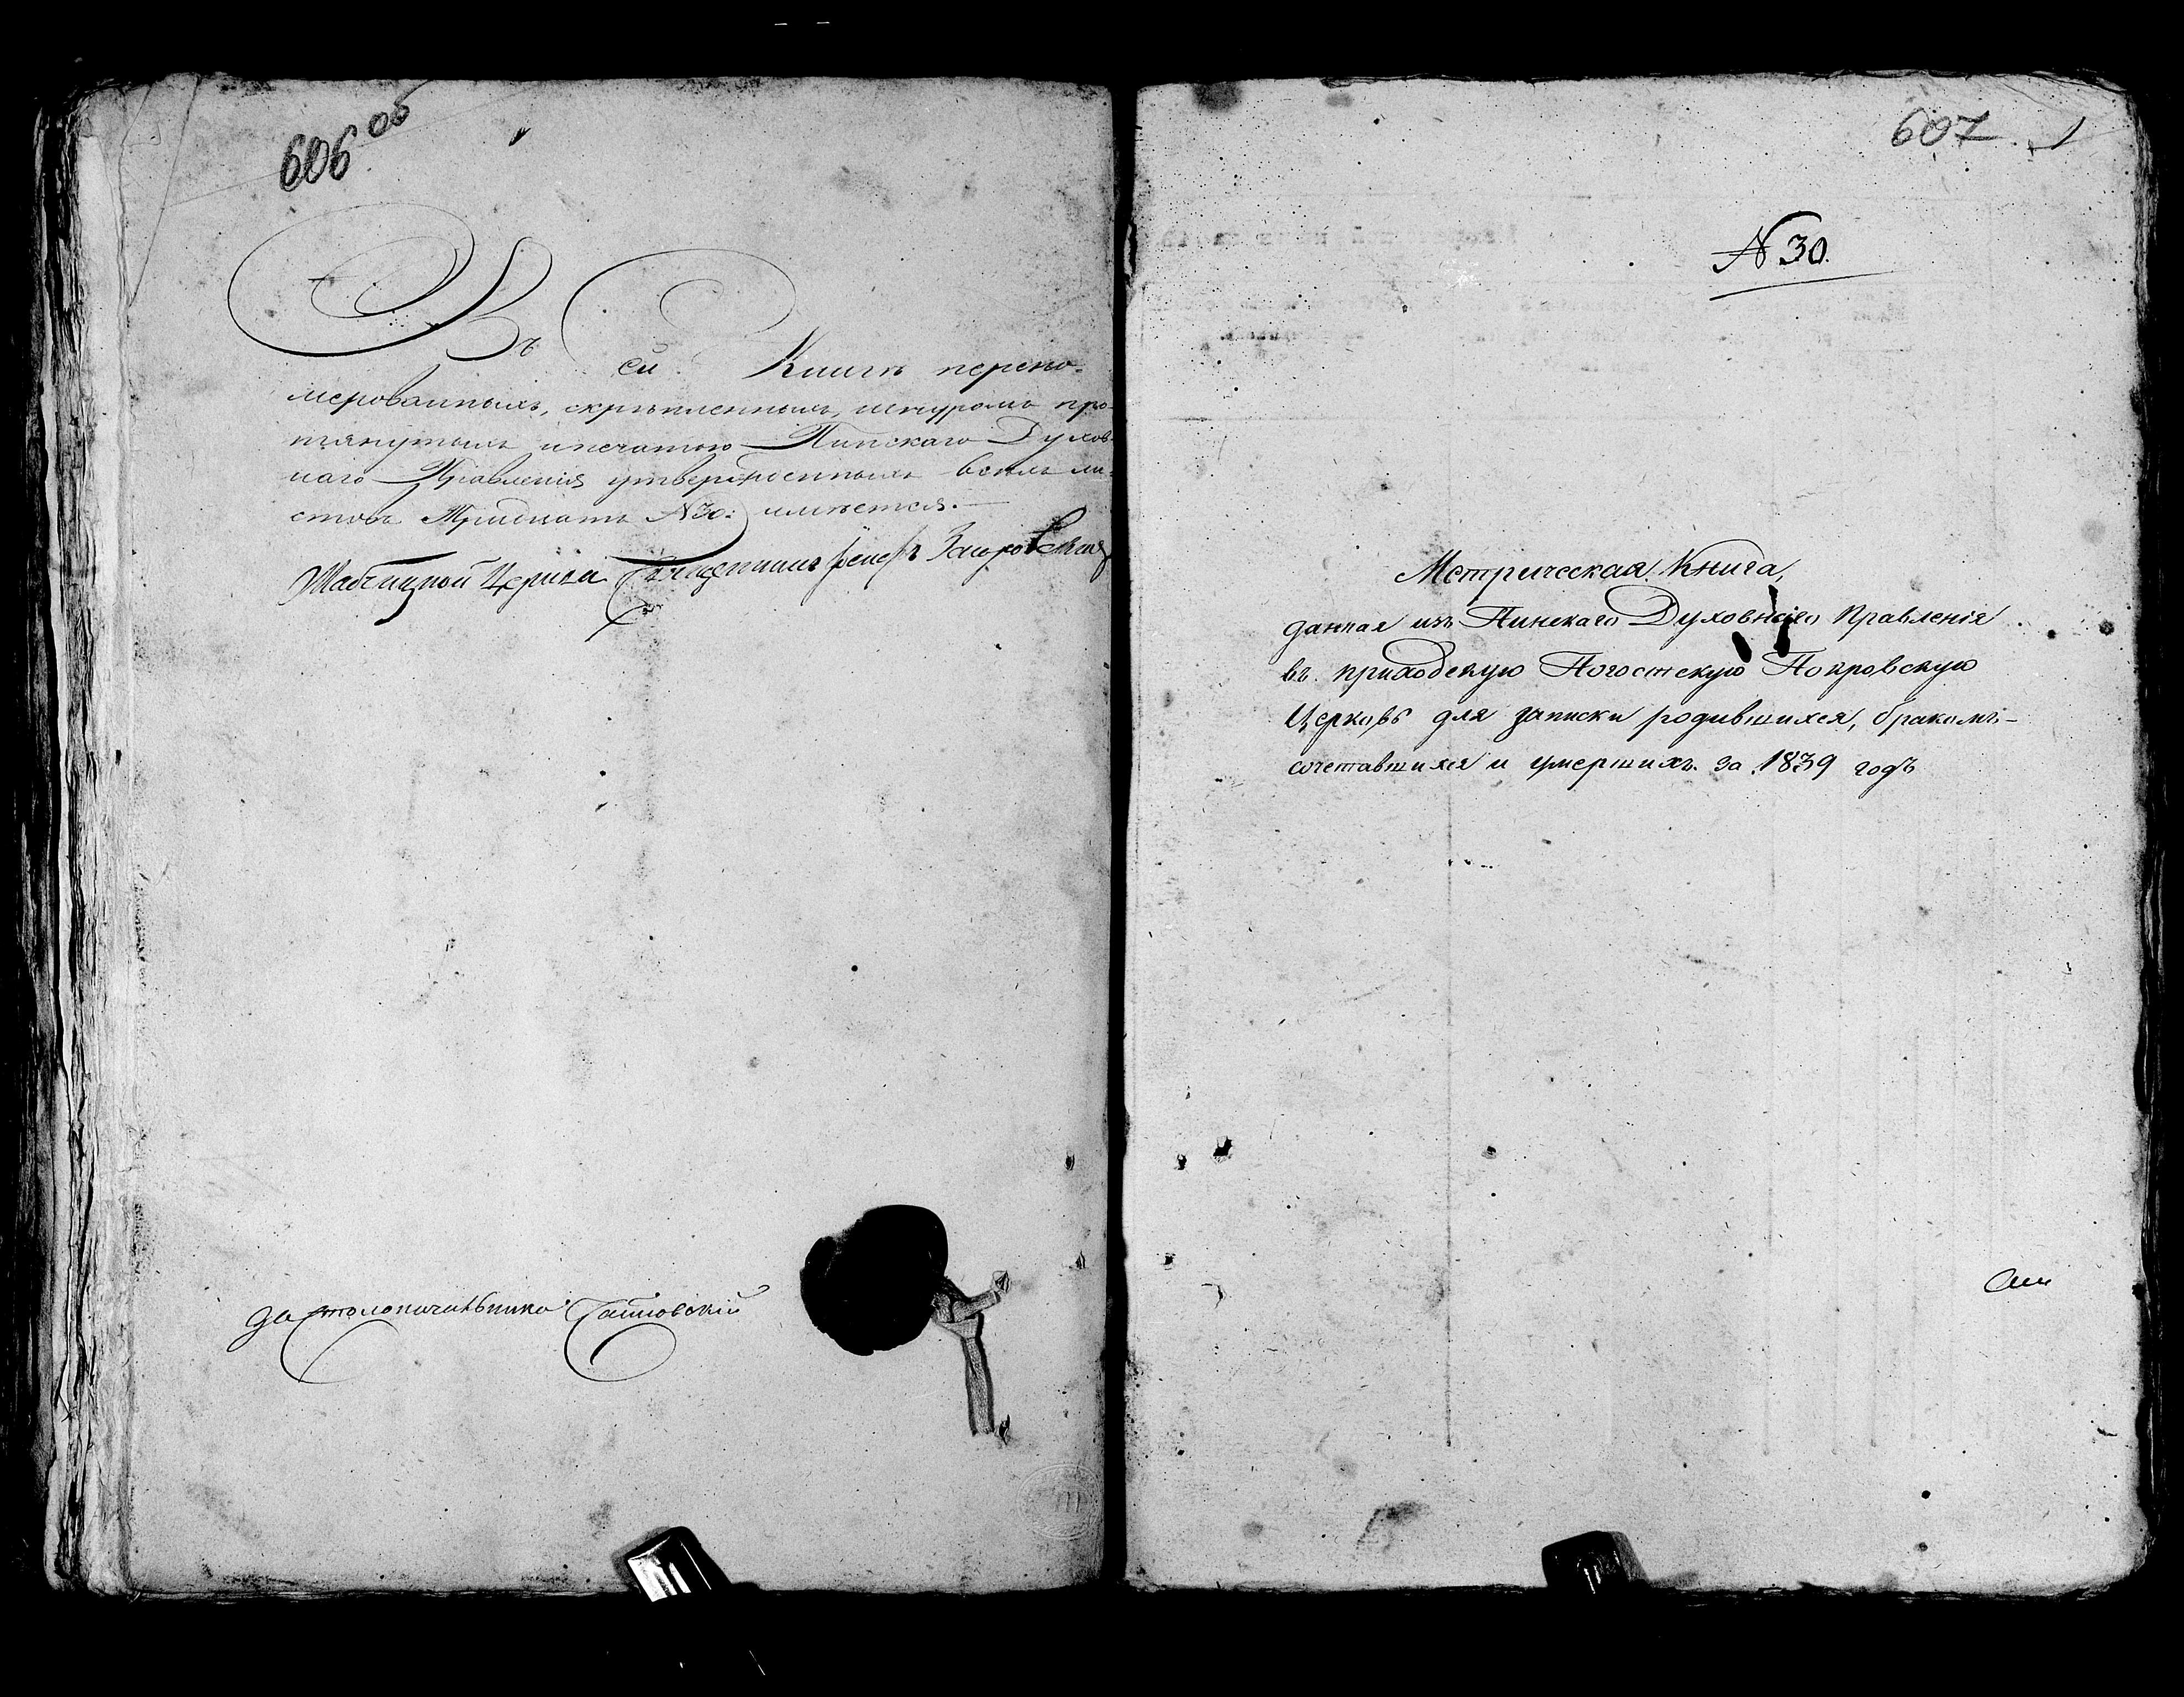 606 об
Въ сей Книгѣ перено-
мерованныхъ, скрѣпленныхъ, шнуромъ про-
тянутыхъ и печатью Пинскаго Духов-
наго Правленія утвержденныхъ всѣхъ ли-
стовъ Тридцать №30: имѣется.
Церкви Священникъ
За Столоначальника
607. 1
№ 30.
Метрическая Книга,
данная изъ Пинскаго Духовнаго Правленія
въ приходскую Погостскую Покровскую
Церковь для записки родившихся, бракомъ-
сочетавшихся и умершихъ за 1839 годъ